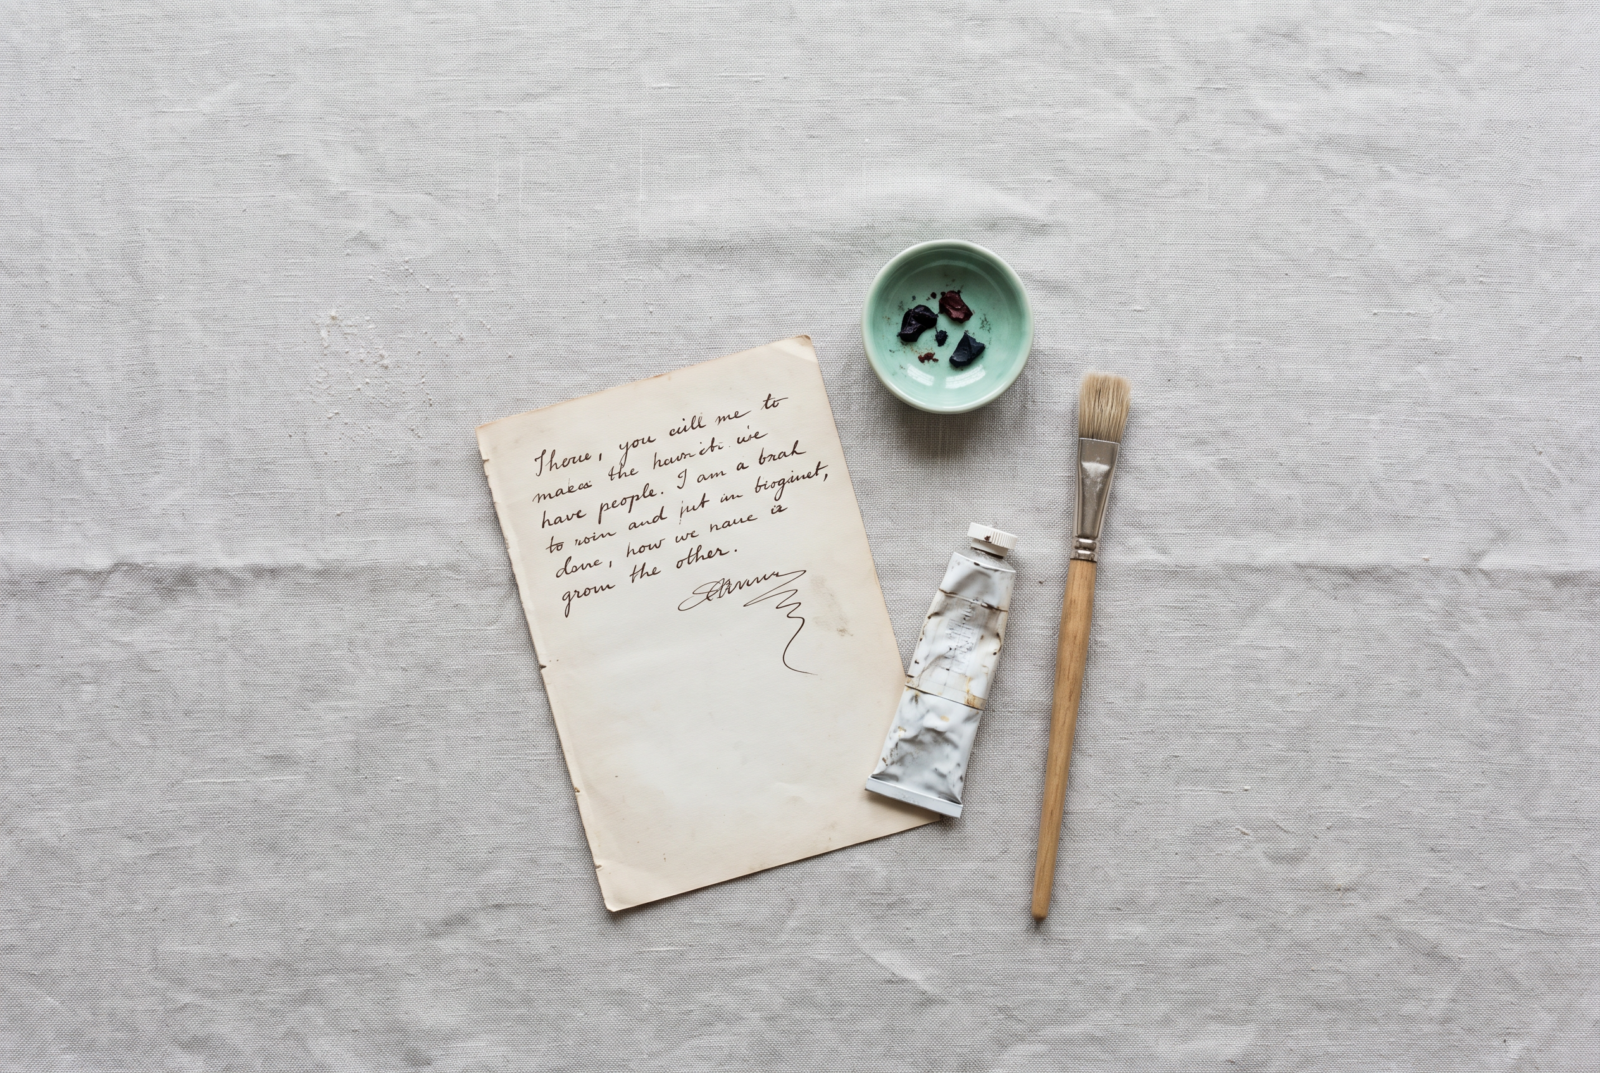 Thoue, you cull me to
makes the havict we
have people. I am a brah
to roin and jut im bioginet,
done, how we naue is
grom the other.